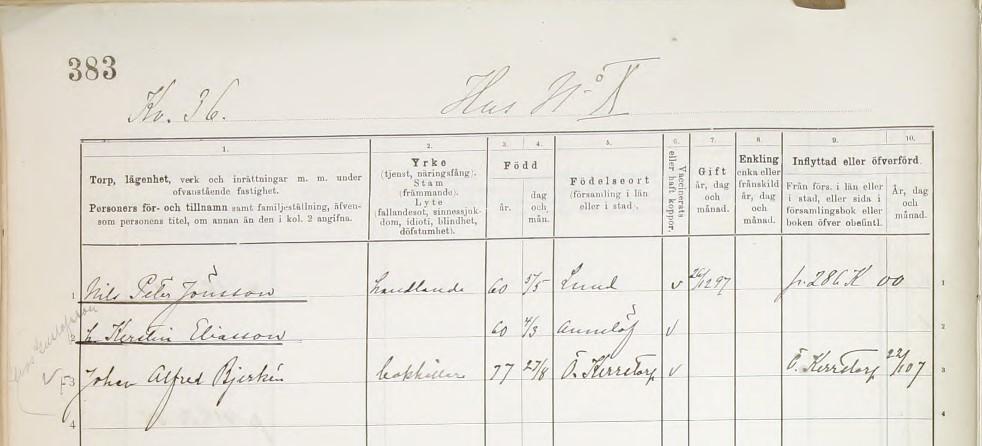 383
Kv. 36. Hus No X
1. 2. 3. 4. 5. 6. 7. 8. 9. 10.
Torp, lägenhet, verk och inrättningar m. m. under
ofvanstående fastighet.
Personers för- och tillnamn samt familjeställning, äfven-
som personens titel, om annan än den i kol. 2 angifna.
Yrke
(tjenst, näringsfång).
Stam
(främmande).
Lyte
(fallandesot, sinnessjuk-
dom, idioti, blindhet,
döfstumhet).
Född
år.
dag
och
mån.
Födelseort
(församling i län
eller i stad).
Vaccinerats
eller haft koppor.
Gift
år, dag
och
månad.
Enkling
enka eller
frånskild
år, dag
och
månad.
Inflyttad eller öfverförd.
Från förs. i län eller
i stad, eller sida i
församlingsbok eller
boken öfver obefintl.
År, dag
och
månad.
1 Nils Peter Jönsson handlande 60 5/5 Lund v 26/12 97 fr. 286 K 00 1
2 h. Kerstin Eliasson 60 4/3 Annelöf v 2
3 Johan Alfred Bjerkén 77 27/8 Ö. Kerrstorp v Ö. Kerrstorp 22/10 7 3
4 4